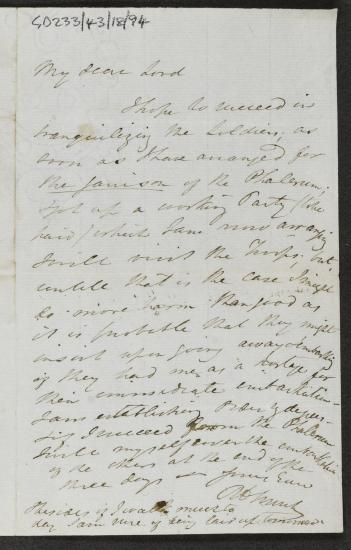 GD233/43/18/94
My dear Lord
I hope to succeed in
tranquilizing the soldiers, as
soon as I have arranged for
the garrison of the Phalerum,
got up a working Party (the
paid) which I am now arranging
I will visit the Troops, but
until that is the case I might
do more harm than good as
it is probable that they might
insist upon going away or embarking
if they had me as a hostage for
their immediate embarkation
I am establishing order by degrees
if I succeed from the Phalerum
I will myself over the embarkation
of the others at the end of the
three days
Besides if I walk much to
day I am sure of being laid up tomorrow